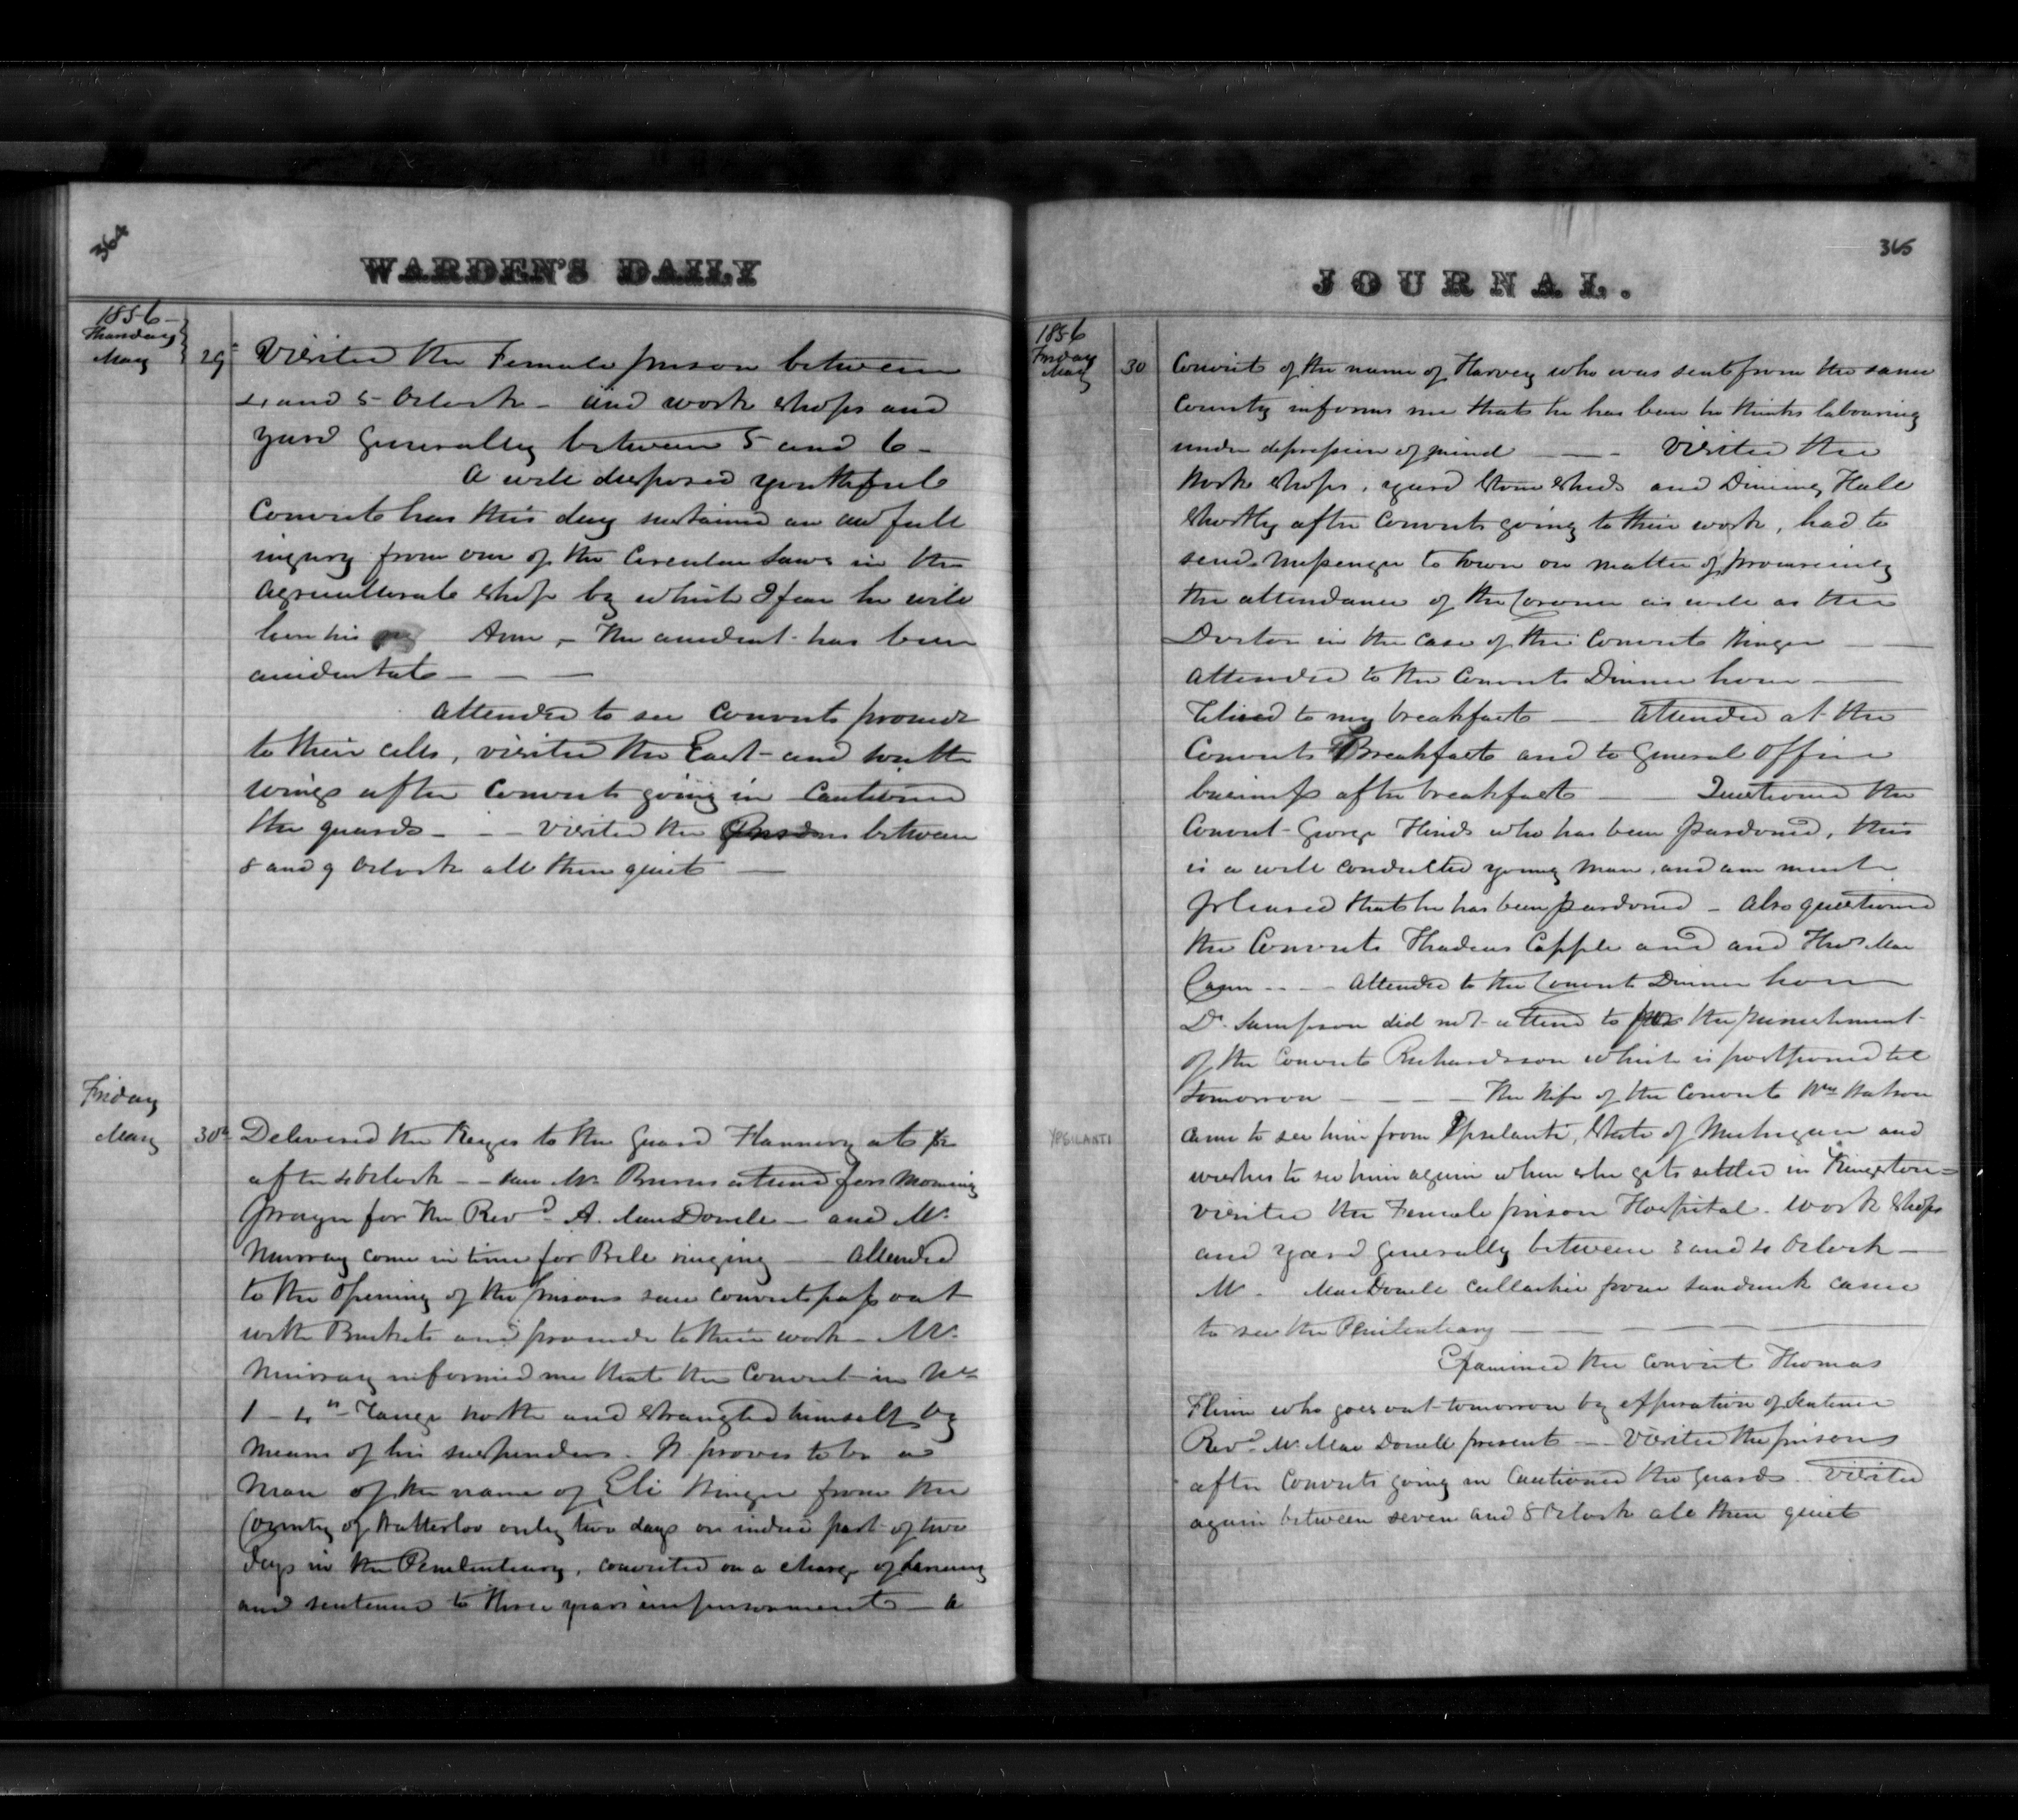 364
WARDEN'S DAILY
1856
Thursday
May 29 Visited the Female prison between
4 and 5 Oclock - and work shops and
yard generally between 5 and 6 -
A well disposed youthful
Convict has this day sustained an awfull
injury from one of the Circular Saws in the
Agricultural shop by which I fear he will
loose his Arm, - The accident has been
accidental - - -
Attended to see Convicts proceed
to their cells, visited the East and South
wings after Convicts going in Cautioned
the guards - - - visited the Prisons between
8 and 9 Oclock all then quiet -
Friday
May 30th Delivered the Keyes to the Guard Flannery at
after 4 Oclock - - saw Mr. Burns attend for Morning
Prayer for the Revd. A. MacDonell - and Mr.
Murray come in time for Bell ringing - Attended
to the Opening of the prisons saw Convicts pass out
with Buckets and proceed to their work - Mr.
Murray informed me that the Convict in No
1 - 4th Range north and strangled himself by
means of his suspenders. It proves to be a
Man of the name of Eli from the
County of Watterloo only two days or indeed part of two
days in the Penitentiary, convicted on a charge of Larceny
and sentenced to three years imprisonment - a
365
JOURNAL.
1856
Friday
May 30 Convict of the name of Harvey who was sent from the same
County informs me that he has been he thinks labouring
under depression of mind - - - Visited the
Work shops, yard Stone Sheds and Dining Hall
shortly after Convicts going to their work, had to
send Messenger to Town on matter of procureing
the attendance of the Coroner as well as the
Doctor in the case of the Convict - -
Attended to the Convicts Dinner hour -
Retired to my breakfast - - Attended at the
Convicts Breakfast and to General Office
business after breakfast - Questioned the
Convict George Hinds who has been pardoned, this
is a well conducted young man, and am much
pleased that he has been pardoned - Also questioned
the Convicts Thadeus Capple and and Thos. Mac
- - - Attended to the Convicts Dinner hour
Dr. Sampson did not attend to the punishment
of the Convict Richardson which is postponed till
tomorrow - - - - The Wife of the Convict Wm Watson
YPSILANTI
came to see him from Ypsilanti, State of Michigan and
wishes to see him again when she gets settled in Kingston -
visited the Female prison Hospital. Work shops
and yard generally between 3 and 4 Oclock -
Mr. MacDonell from Sandwich came
to see the Penitentiary - - -
Examined the Convict Thomas
Flinn who goes out tomorrow by expiration of Sentence
Revd. Mr. Mac Donell present - Visited the prisons
after Convicts going in Cautioned the Guards. Visited
again between seven and 8 Oclock all then quiet